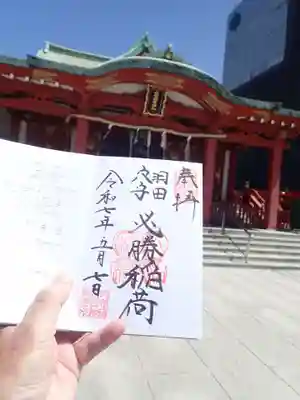 奉拝
羽田
穴守
必勝稲荷
令和七年五月七日